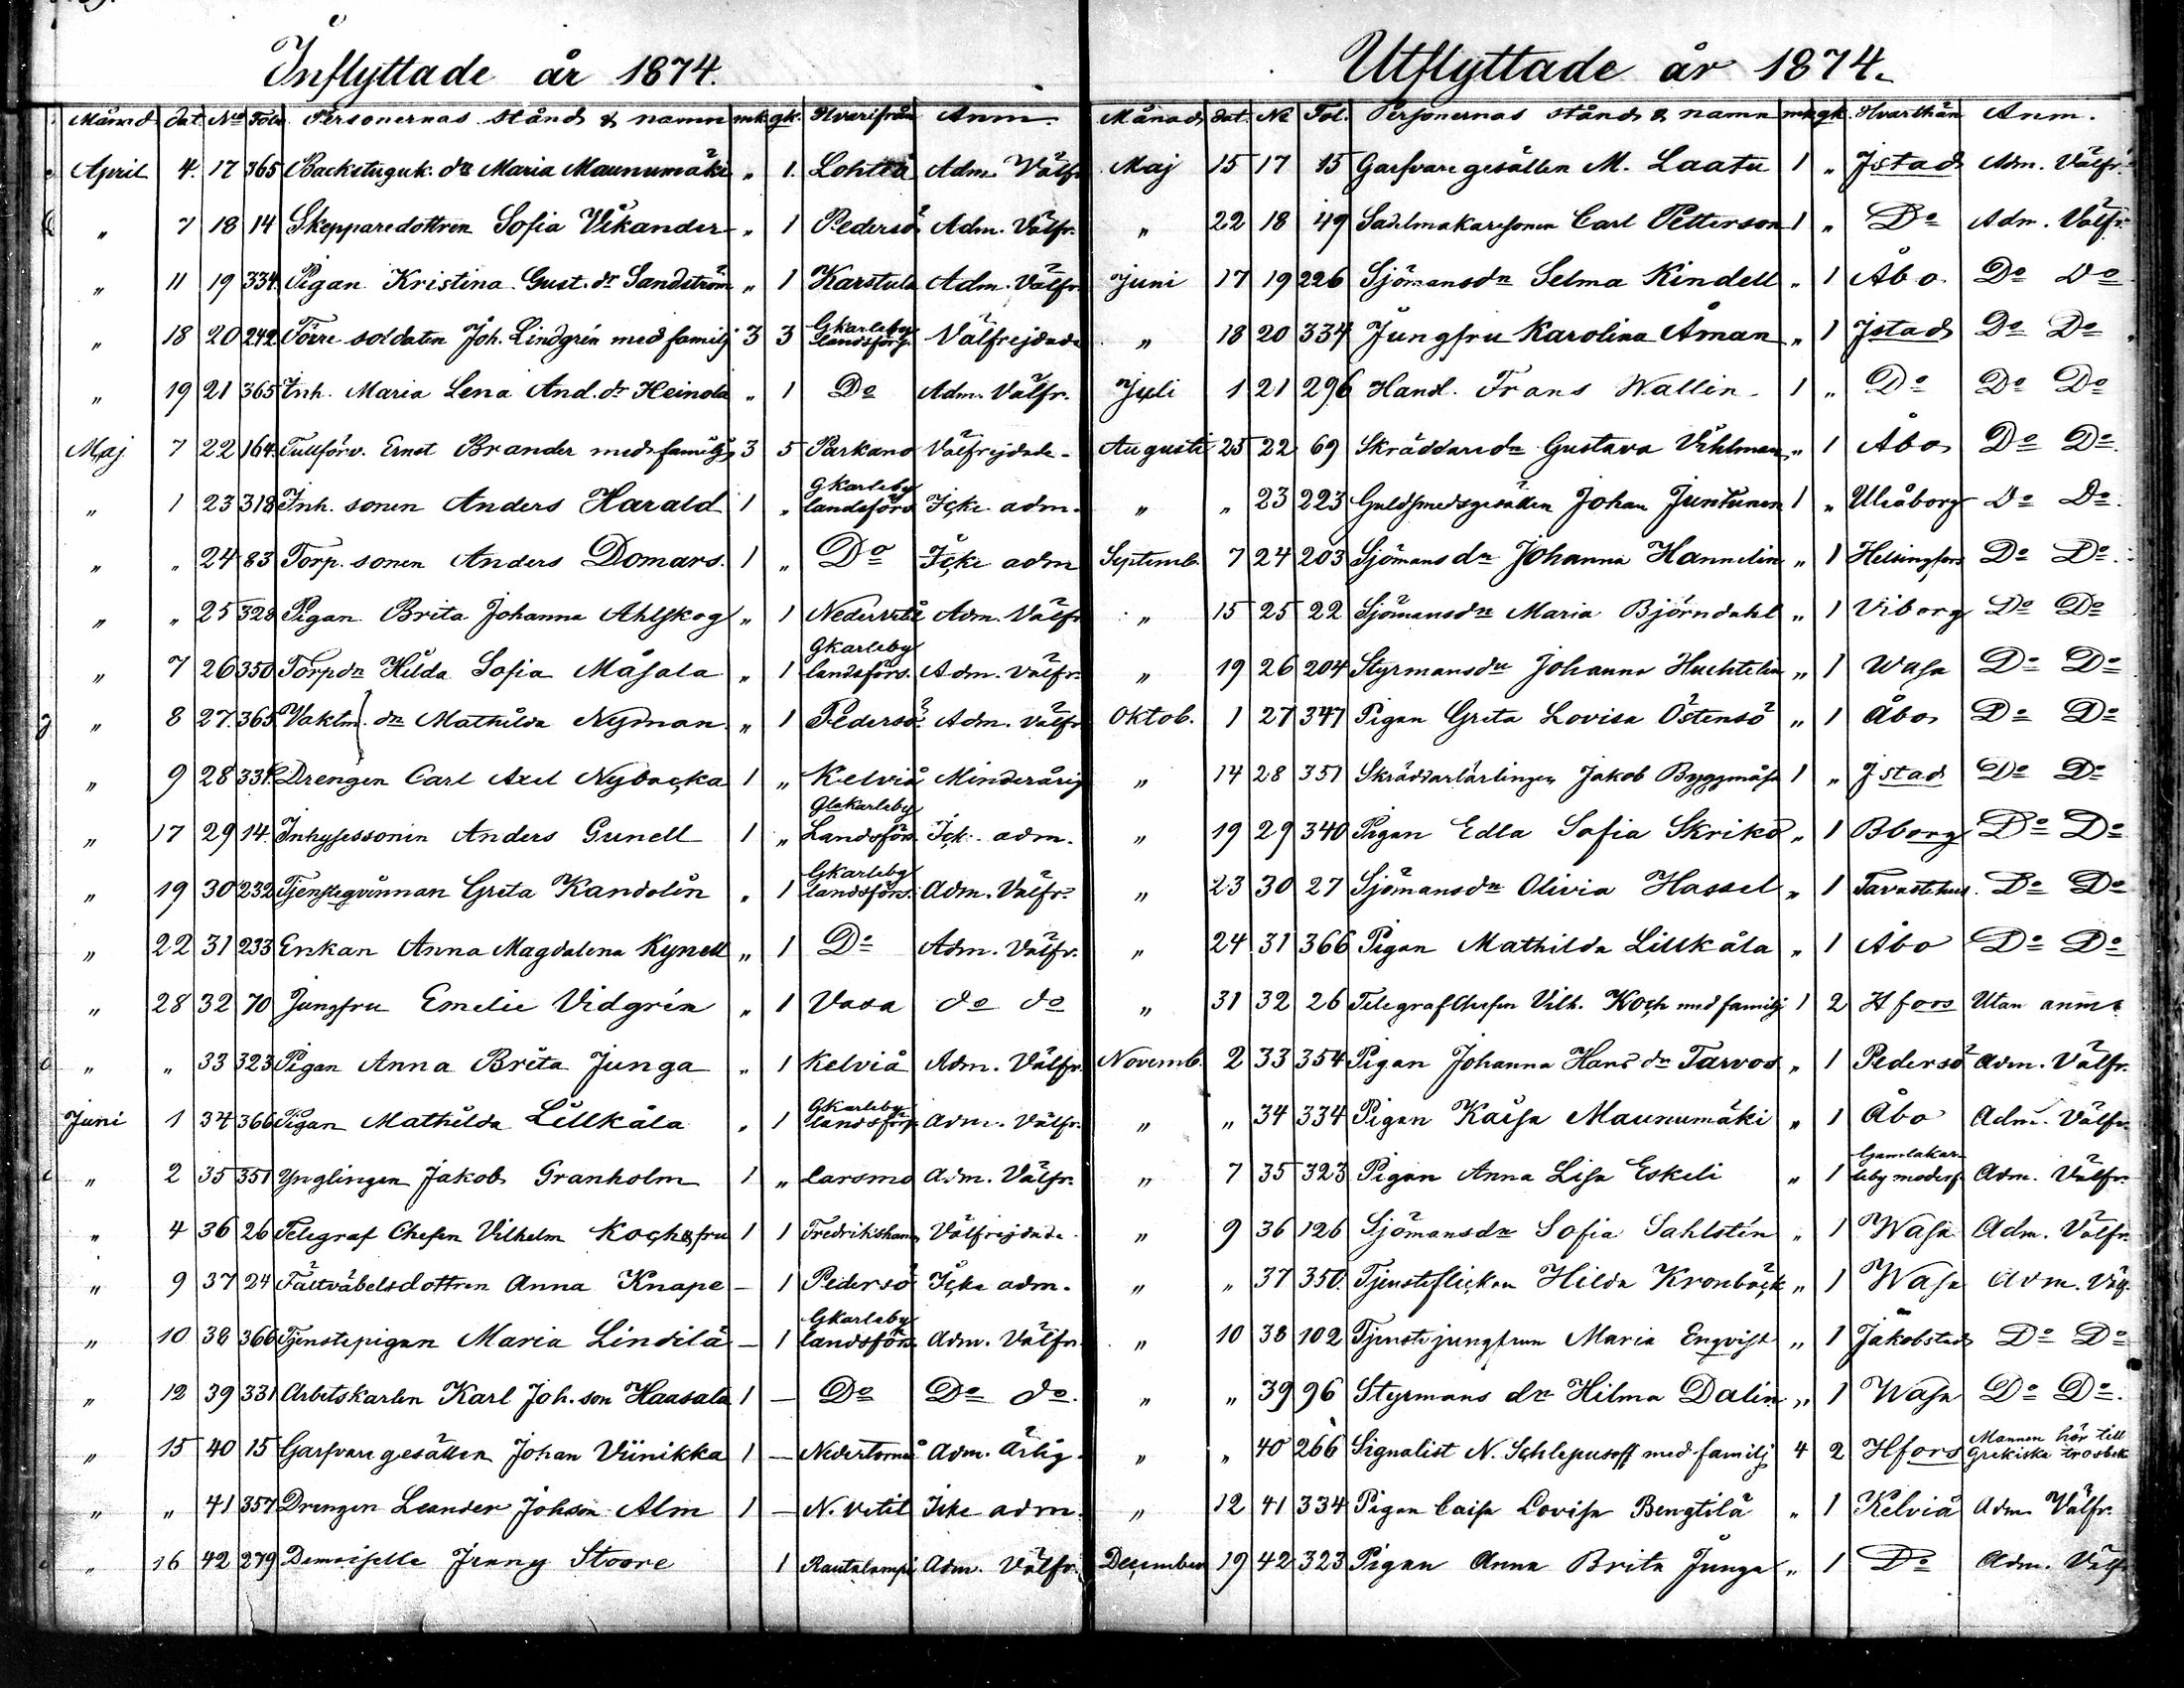 Inflyttade år 1874.
Månad dat. No Folio Personernas stånd & namn mk. qk. Hvarifrån Anm.
April 4. 17 365 Backstuguk. dr Maria Maunumäki " 1. Lohteå Adm. Välfr.
" 7 18 14 Skepparedottren Sofia Vikander " 1 Pedersö Adm. Välfr.
" 11 19 334 Pigan Kristina Gust. dr Sandström " 1 Karstula Adm. Välfr.
" 18 20 242 Förre soldaten Joh. Lindgrén med familj 3 3 Gkarleby landsförs. Välfrejdade
" 19 21 365 Inh. Maria Lena And. dr Heinola " 1 Do Adm. Välfr.
Maj 7 22 164 Tullförv. Ernst Brander med familj 3 5 Parkano Välfrejdade
" 1 23 318 Inh. sonen Anders Harald 1 " Gkarleby landsförs Icke adm.
" " 24 83 Torp. sonen Anders Domars. 1 " Do Icke adm
" " 25 328 Pigan Brita Johanna Ahlskog " 1 Nedervetil Adm. Välfr
" 7 26 350 Torp dn Hilda Sofia Måsala " 1 Gkarleby landsförs. Adm. Välfr.
" 8 27. 365 Vaktm. dn Mathilda Nyman. " 1 Pedersö Adm. Välfr
" 9 28 334 Drengen Carl Axel Nybacka 1 " Kelviå Minderårig
" 17 29 14. Inhysessonen Anders Gunell 1 " Glakarleby Landsförs. Ick. adm.
" 19 30 232 Tjensteqvinnan Greta Kandolin " 1 Gkarleby landsförs. Adm. Välfr.
" 22 31 233 Enkan Anna Magdalena Kynell " 1 Do Adm. Välfr.
" 28 32 70 Jungfru Emelie Vidgrén " 1 Vasa do do
" " 33 323 Pigan Anna Brita Junga " 1 Kelviå Adm. Välfr.
Juni 1 34 366 Pigan Mathilda Lillkåla " 1 Gkarleby landsförs Adm. Välfr.
" 2 35 351 Ynglingen Jakob Granholm 1 " Larsmo Adm. Välfr.
" 4 36 26 Telegraf Chefen Vilhelm Koch & fru 1 1 Fredrikshamn Välfrejdade
" 9 37 24 Fältväbelsdottren Anna Knape — 1 Pedersö Icke adm.
" 10 38 366 Tjenstepigan Maria Lindilä — 1 Gkarleby landsförs. Adm. Välfr.
" 12 39 331 Arbetskarlen Karl Joh. son Haasala 1 — Do Do do.
" 15 40 15 Garfvaregesällen Johan Viinikka 1 — Nedertorneå Adm. Ärlig.
" " 41 357 Drengen Leander Johsson Alm 1 — N. vetil Icke adm.
" 16 42 279 Demoiselle Jenny Stoore 1 Rautalampi Adm. Välfr.
Utflyttade år 1874.
Månad dat. No Fol. Personernas stånd & namn mk qk. Hvarthän Anm.
Maj 15 17 15 Garfvaregesällen M. Laatu 1 " Jstad Adm. Välfr.
" 22 18 49 Sadelmakaresonen Carl Petterson 1 " Do Adm. Välfr.
Juni 17 19 226 Sjömansdn Selma Kindell " 1 Åbo Do Do
" 18 20 334 Jungfru Karolina Åman " 1 Jstad Do Do
Juli 1 21 296 Hand. Frans Wallin 1 " Do Do Do
Augusti 25 22 69 Skräddaredn Gustava Vihlman " 1 Åbo Do Do.
" " 23 223 Guldsmedsgesällen Johan Juntunen 1 " Uleåborg Do Do.
Septemb. 7 24 203 Sjömans dn Johanna Hannelin " 1 Helsingfors Do Do.
" 15 25 22 Sjömansdn Maria Björndahl " 1 Viborg Do Do
" 19 26 204 Styrmansdn Johanna Huchtelin " 1 Wasa Do Do
Oktob. 1 27 347 Pigan Greta Lovisa Östensö " 1 Åbo Do Do
" 14 28 351 Skräddarlärlingen Jakob Byggmäs. 1 " Jstad Do Do
" 19 29 340 Pigan Edla Sofia Skrikó " 1 Bborg Do Do
" 23 30 27 Sjömansdn Olivia Hassel " 1 Tavastehus. Do Do
" 24 31 366 Pigan Mathilda Lillkåla " 1 Åbo Do Do
" 31 32 26 Telegrafchefen Vilh. Koch med familj 1 2 Hfors Utan anm.
Novemb. 2 33 354 Pigan Johanna Hans dn Tarvos " 1 Pedersö Adm. Välfr.
" " 34 334 Pigan Kaisa Maunumäki " 1 Åbo Adm. Välfr.
" 7 35 323 Pigan Anna Lisa Eskeli " 1 Gamlakarleby moderf. Adm. Välfr.
" 9 36 126 Sjömansdn Sofia Sahlstén " 1 Wasa Adm. Välfr.
" " 37 350. Tjensteflickan Hilda Kronbäck " 1 Wasa Adm. Väl.
" 10 38 102 Tjenstejungfrun Maria Enqvist " 1 Jakobstad Do Do
" " 39 96 Styrmans dn Hilma Dalin " 1 Wasa Do Do.
" " 40 266 Signalist N. Schlepusoff med familj 4 2 Hfors Mannen hör till Grekiska trosbek
" 12 41 334 Pigan Caisa Lovisa Bengtilä " 1 Kelviå Adm Välfr.
December 19 42 323 Pigan Anna Brita Junga " 1 Do Adm. Välf